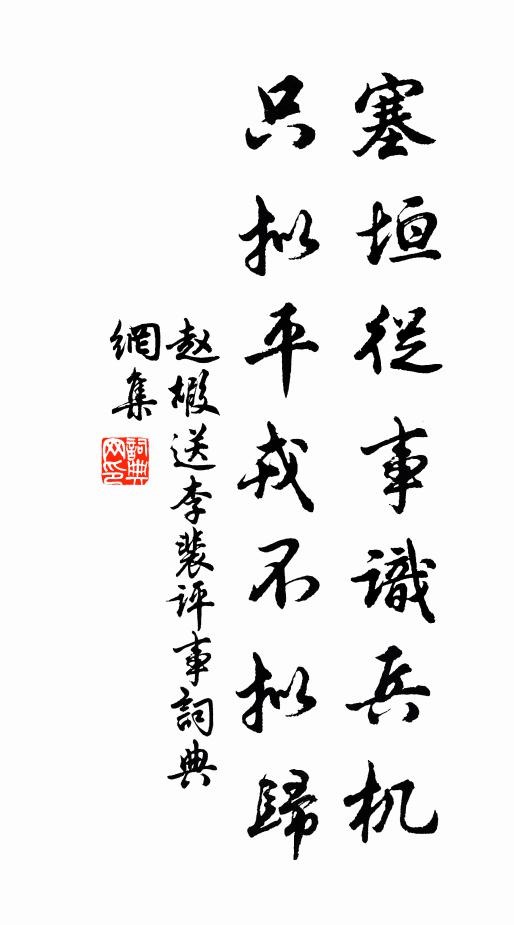 塞垣從事識兵机
只拟平戎不拟歸
赵嘏送李裴评事詞典
網集
詞典網印